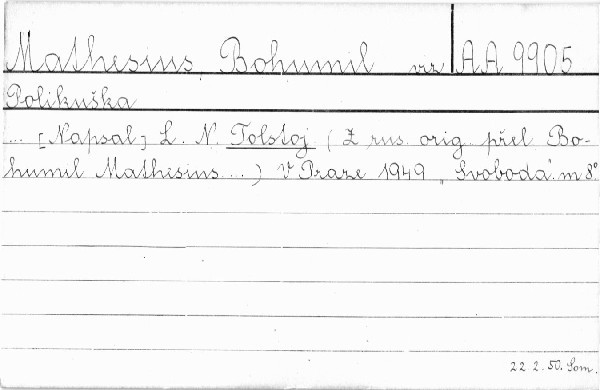 Mathesius Bohumil vz AA 9905
Polikuška
... [Napsal] L. N. Tolstoj (Z rus. orig. přel Bo-
humil Mathesius ...) V Praze 1949 „Svoboda". m 8°
22. 2. 50. Som.